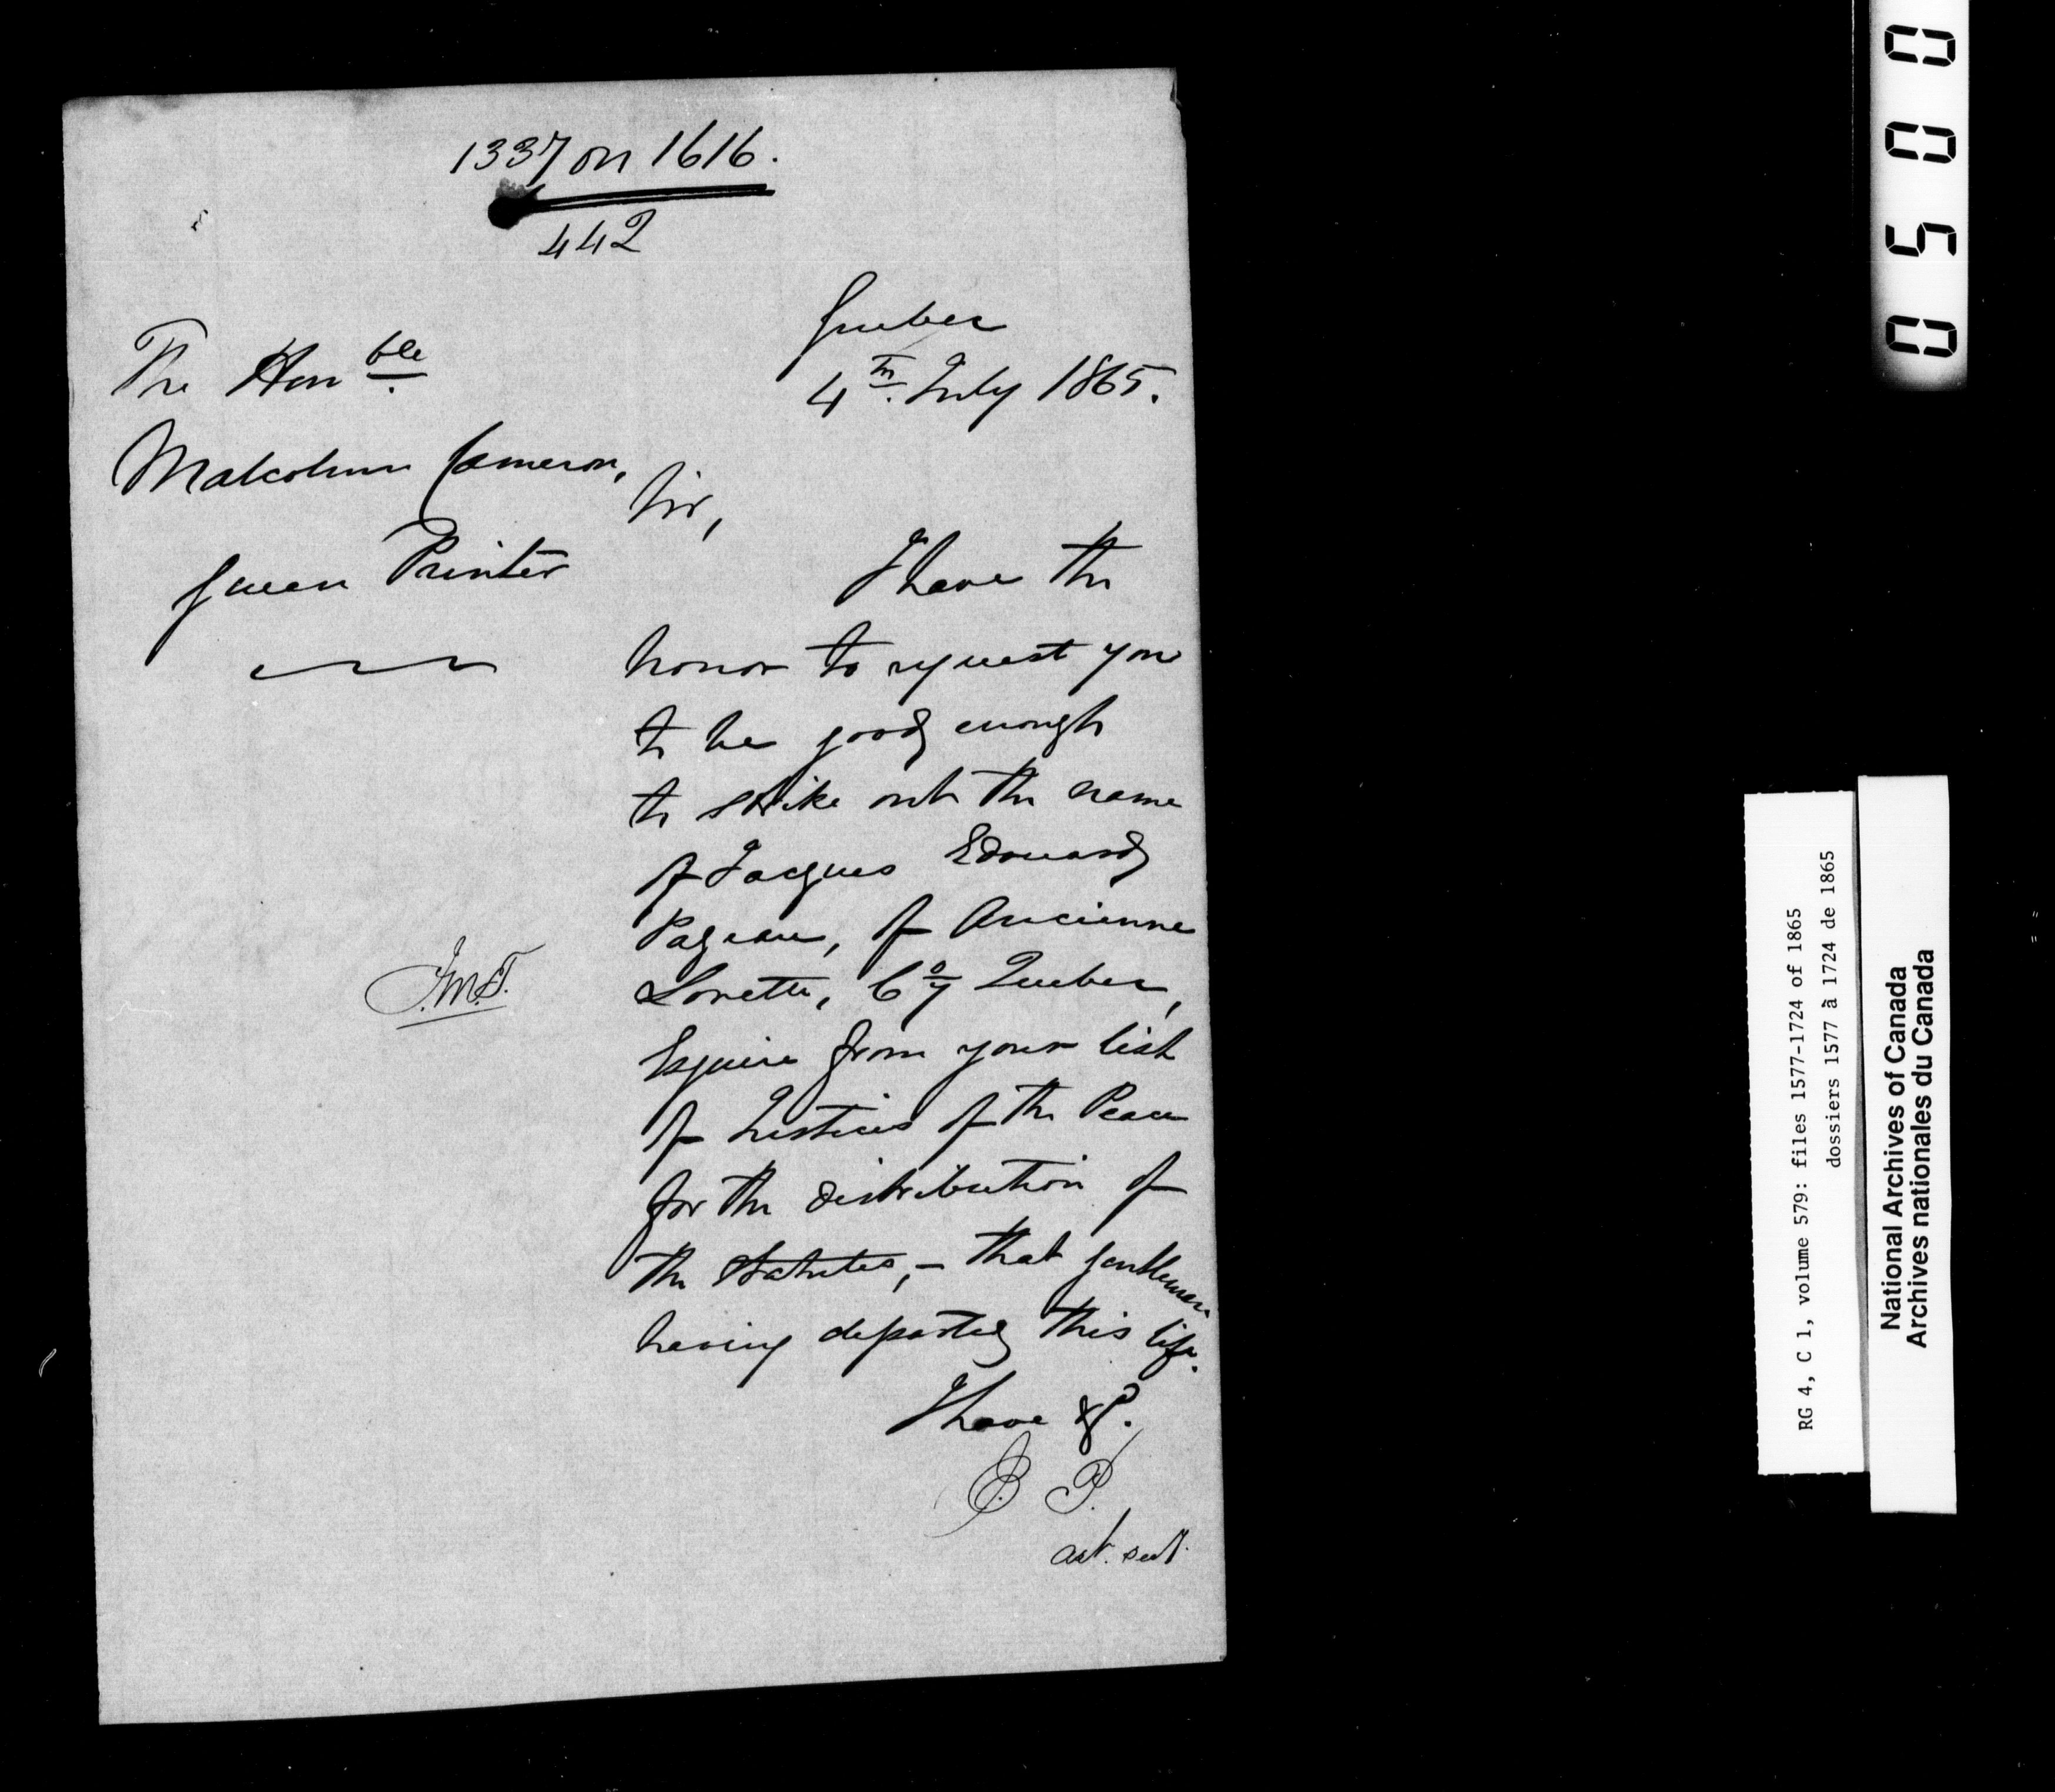 1337 on 1616.
442
Quebec
4th. July 1865.
The Honble.
Malcolm Cameron,
Queen Printer
Sir,
I have the
honor to request you
to be good enough
to strike out the name
of Jacques Edouard
Pageau, of Ancienne
Lorette, Coy Quebec,
Esquire from your list
of Justices of the Peace
for the distribution of
the Statutes, - that gentleman
having departed this life.
I have &c.
E. P.
ast. sect.
J.M.T.
0500
RG 4, C 1, volume 579: files 1577-1724 of 1865
dossiers 1577 à 1724 de 1865
National Archives of Canada
Archives nationales du Canada